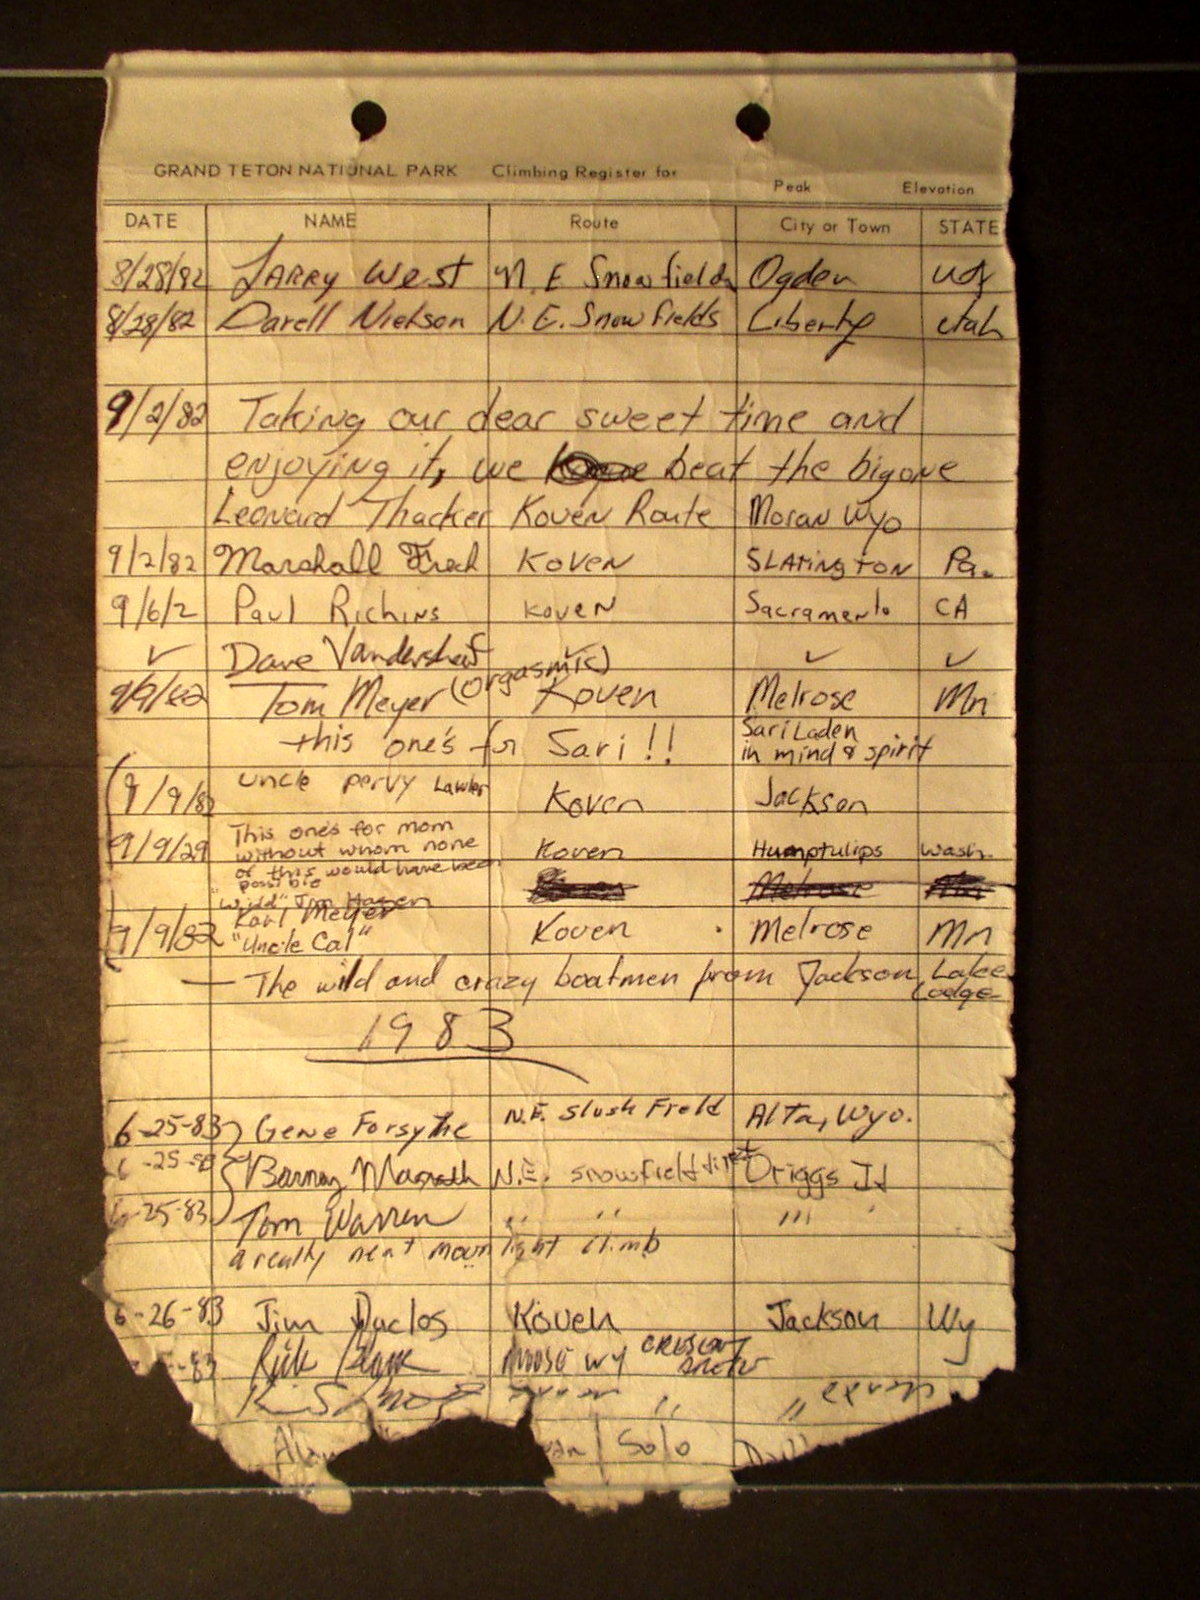 GRAND TETON NATIONAL PARK Climbing Register for
Peak Elevation
DATE NAME Route City or Town STATE
8/28/82 LARRY West N.E Snowfields Ogden Ut
8/28/82 Darell Nielson N.E. Snowfields Liberty Utah
9/2/82 Taking our dear sweet time and
enjoying it, we beat the big one
Leonard Thacker Koven Route Moran Wyo
9/2/82 Marshall Koven SLATINGTON Pa.
9/6/2 Paul Richins Koven Sacramento CA
✓ Dave Vandershaf ✓ ✓ ✓
9/9/82 Tom Meyer (orgasmic) Koven Melrose Mn
this one's for Sari!! Sari Laden
in mind & spirit
9/9/82 uncle pervy Lawler Koven Jackson
9/9/29 This one's for mom Koven Humptulips Wash.
without whom none
of this would have been
possible
Melrose
"Wild" Jim
9/9/82 Karl Meyer Koven Melrose Mn
"Uncle Cal"
— The wild and crazy boatmen from Jackson Lake
Lodge
1983
6-25-83 Gene Forsythe N.E. Slush Field Alta, Wyo.
-25- Barney N.E. snowfield direct Driggs Id
6-25-83 Tom Warren " " "' '
a really neat moonlight climb
6-26-83 Jim Duclos Koven Jackson Wy
-83 Rick Moose Wy CRESCENT
" "
Alan Solo